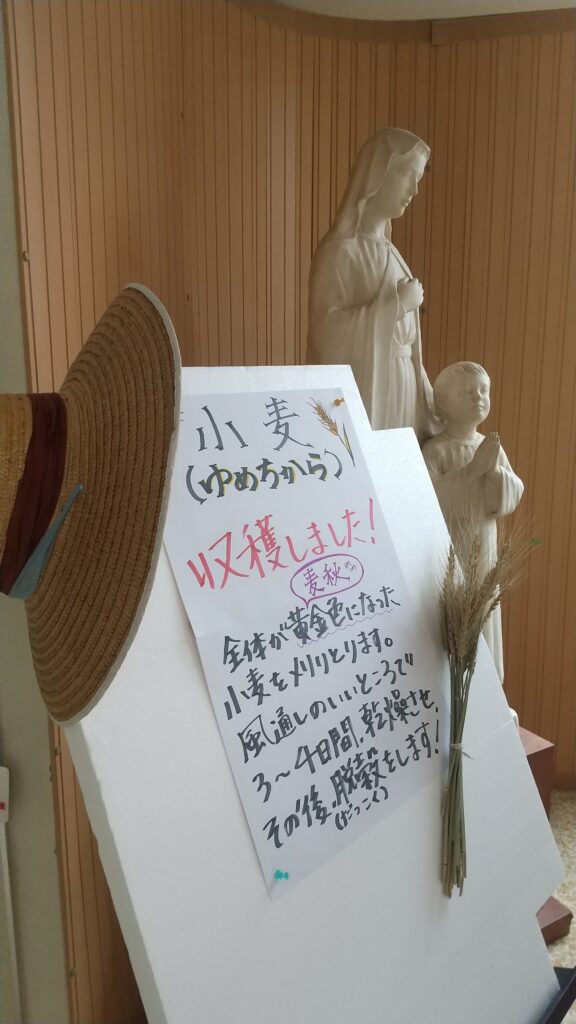 小麦
(ゆめちから)
収穫しました!
麦秋
全体が黄金色になった
小麦をメリリとります。
風通しのいいところで
3〜4日間、乾燥させ
その後、脱穀をします!
(だっこく)